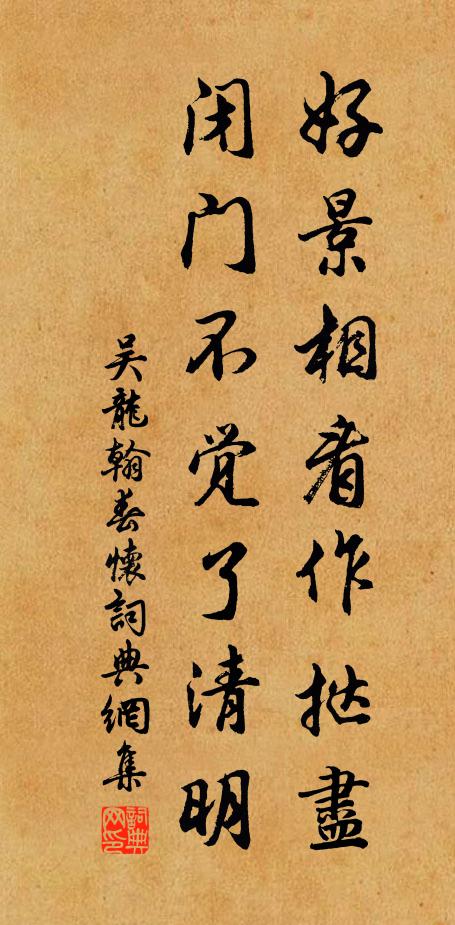 好景相看作挞盡
闭门不觉了清明
吴龍翰春懷詞典網集
詞典网印